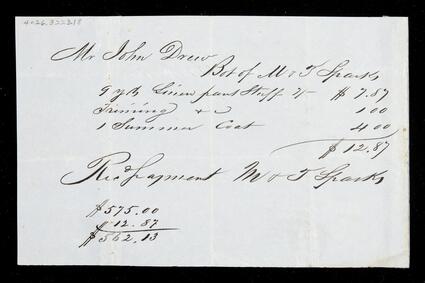 4026.3223.18
Mr John Drew
Bot of M & T Sparks
9 yds Linen pant Stuff $7.87
Triming &c 1.00
1 Summer Coat 4.00
$12.87
Recd payment M & T Sparks
$575.00
12.87
$562.13